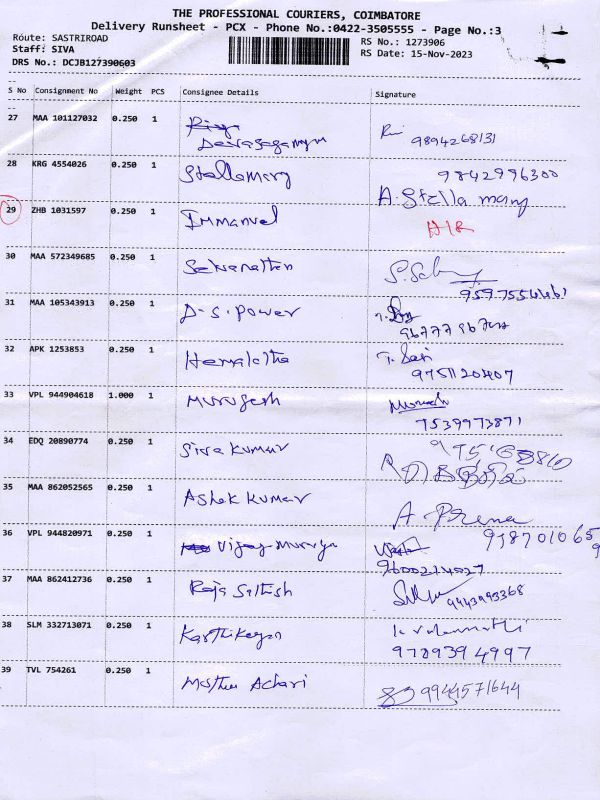 THE PROFESSIONAL COURIERS, COIMBATORE
Delivery Runsheet - PCX - Phone No.:0422-3505555 - Page No.:3
Route: SASTRIROAD
RS No.: 1273906
Staff: SIVA
RS Date: 15-Nov-2023
DRS No.: DCJB127390603
S No Consignment No Weight PCS Consignee Details Signature
27 MAA 101127032 0.250 1
9894268131
28 KRG 4554026 0.250 1 Stellamary 9842996300
A. Stella mary
29 ZHB 1031597 0.250 1 Immanuel
30 MAA 572349685 0.250 1
31 MAA 105343913 0.250 1 D-S-Power
32 APK 1253853 0.250 1 Hemalatha
9751120407
33 VPL 944904618 1.000 1 Murugesh
7539973871
34 EDQ 20890774 0.250 1 Siva Kumar
35 MAA 862052565 0.250 1 Ashok Kumar
A. Prema
36 VPL 944820971 0.250 1 Vijay
37 MAA 862412736 0.250 1 Raja
9443993368
38 SLM 332713071 0.250 1 Karthikeyan
9789394997
39 TVL 754261 0.250 1 Achari
9944571644